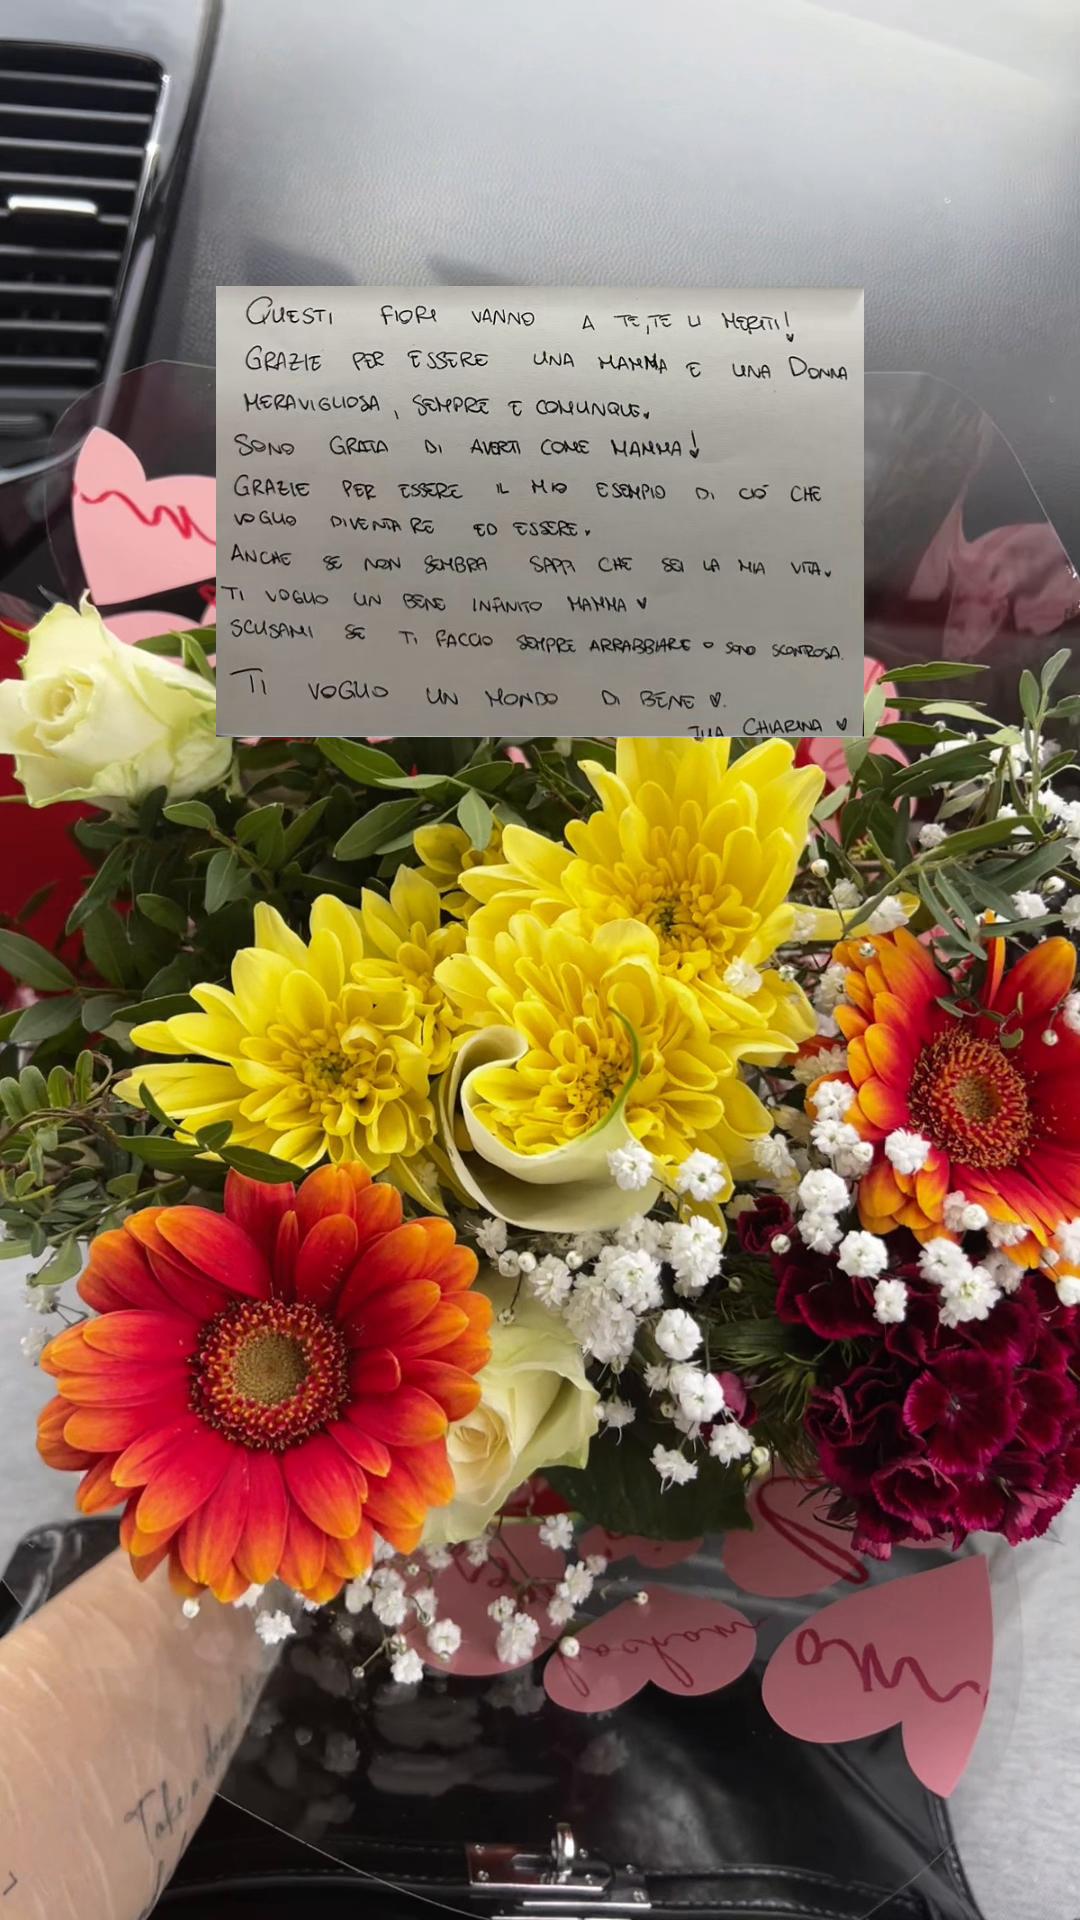 QUESTI FIORI VANNO A TE, TE LI MERITI!
GRAZIE PER ESSERE UNA MAMMA E UNA DONNA
MERAVIGLIOSA, SEMPRE E COMUNQUE.
SONO GRATA DI AVERTI COME MAMMA!
GRAZIE PER ESSERE IL MIO ESEMPIO DI CIÒ CHE
VOGLIO DIVENTARE ED ESSERE.
ANCHE SE NON SEMBRA SAPPI CHE SEI LA MIA VITA.
TI VOGLIO UN BENE INFINITO MAMMA ♥
SCUSAMI SE TI FACCIO SEMPRE ARRABBIARE O SONO SCONTROSA.
TI VOGLIO UN MONDO DI BENE ♥.
TUA CHIARINA ♥
Take a